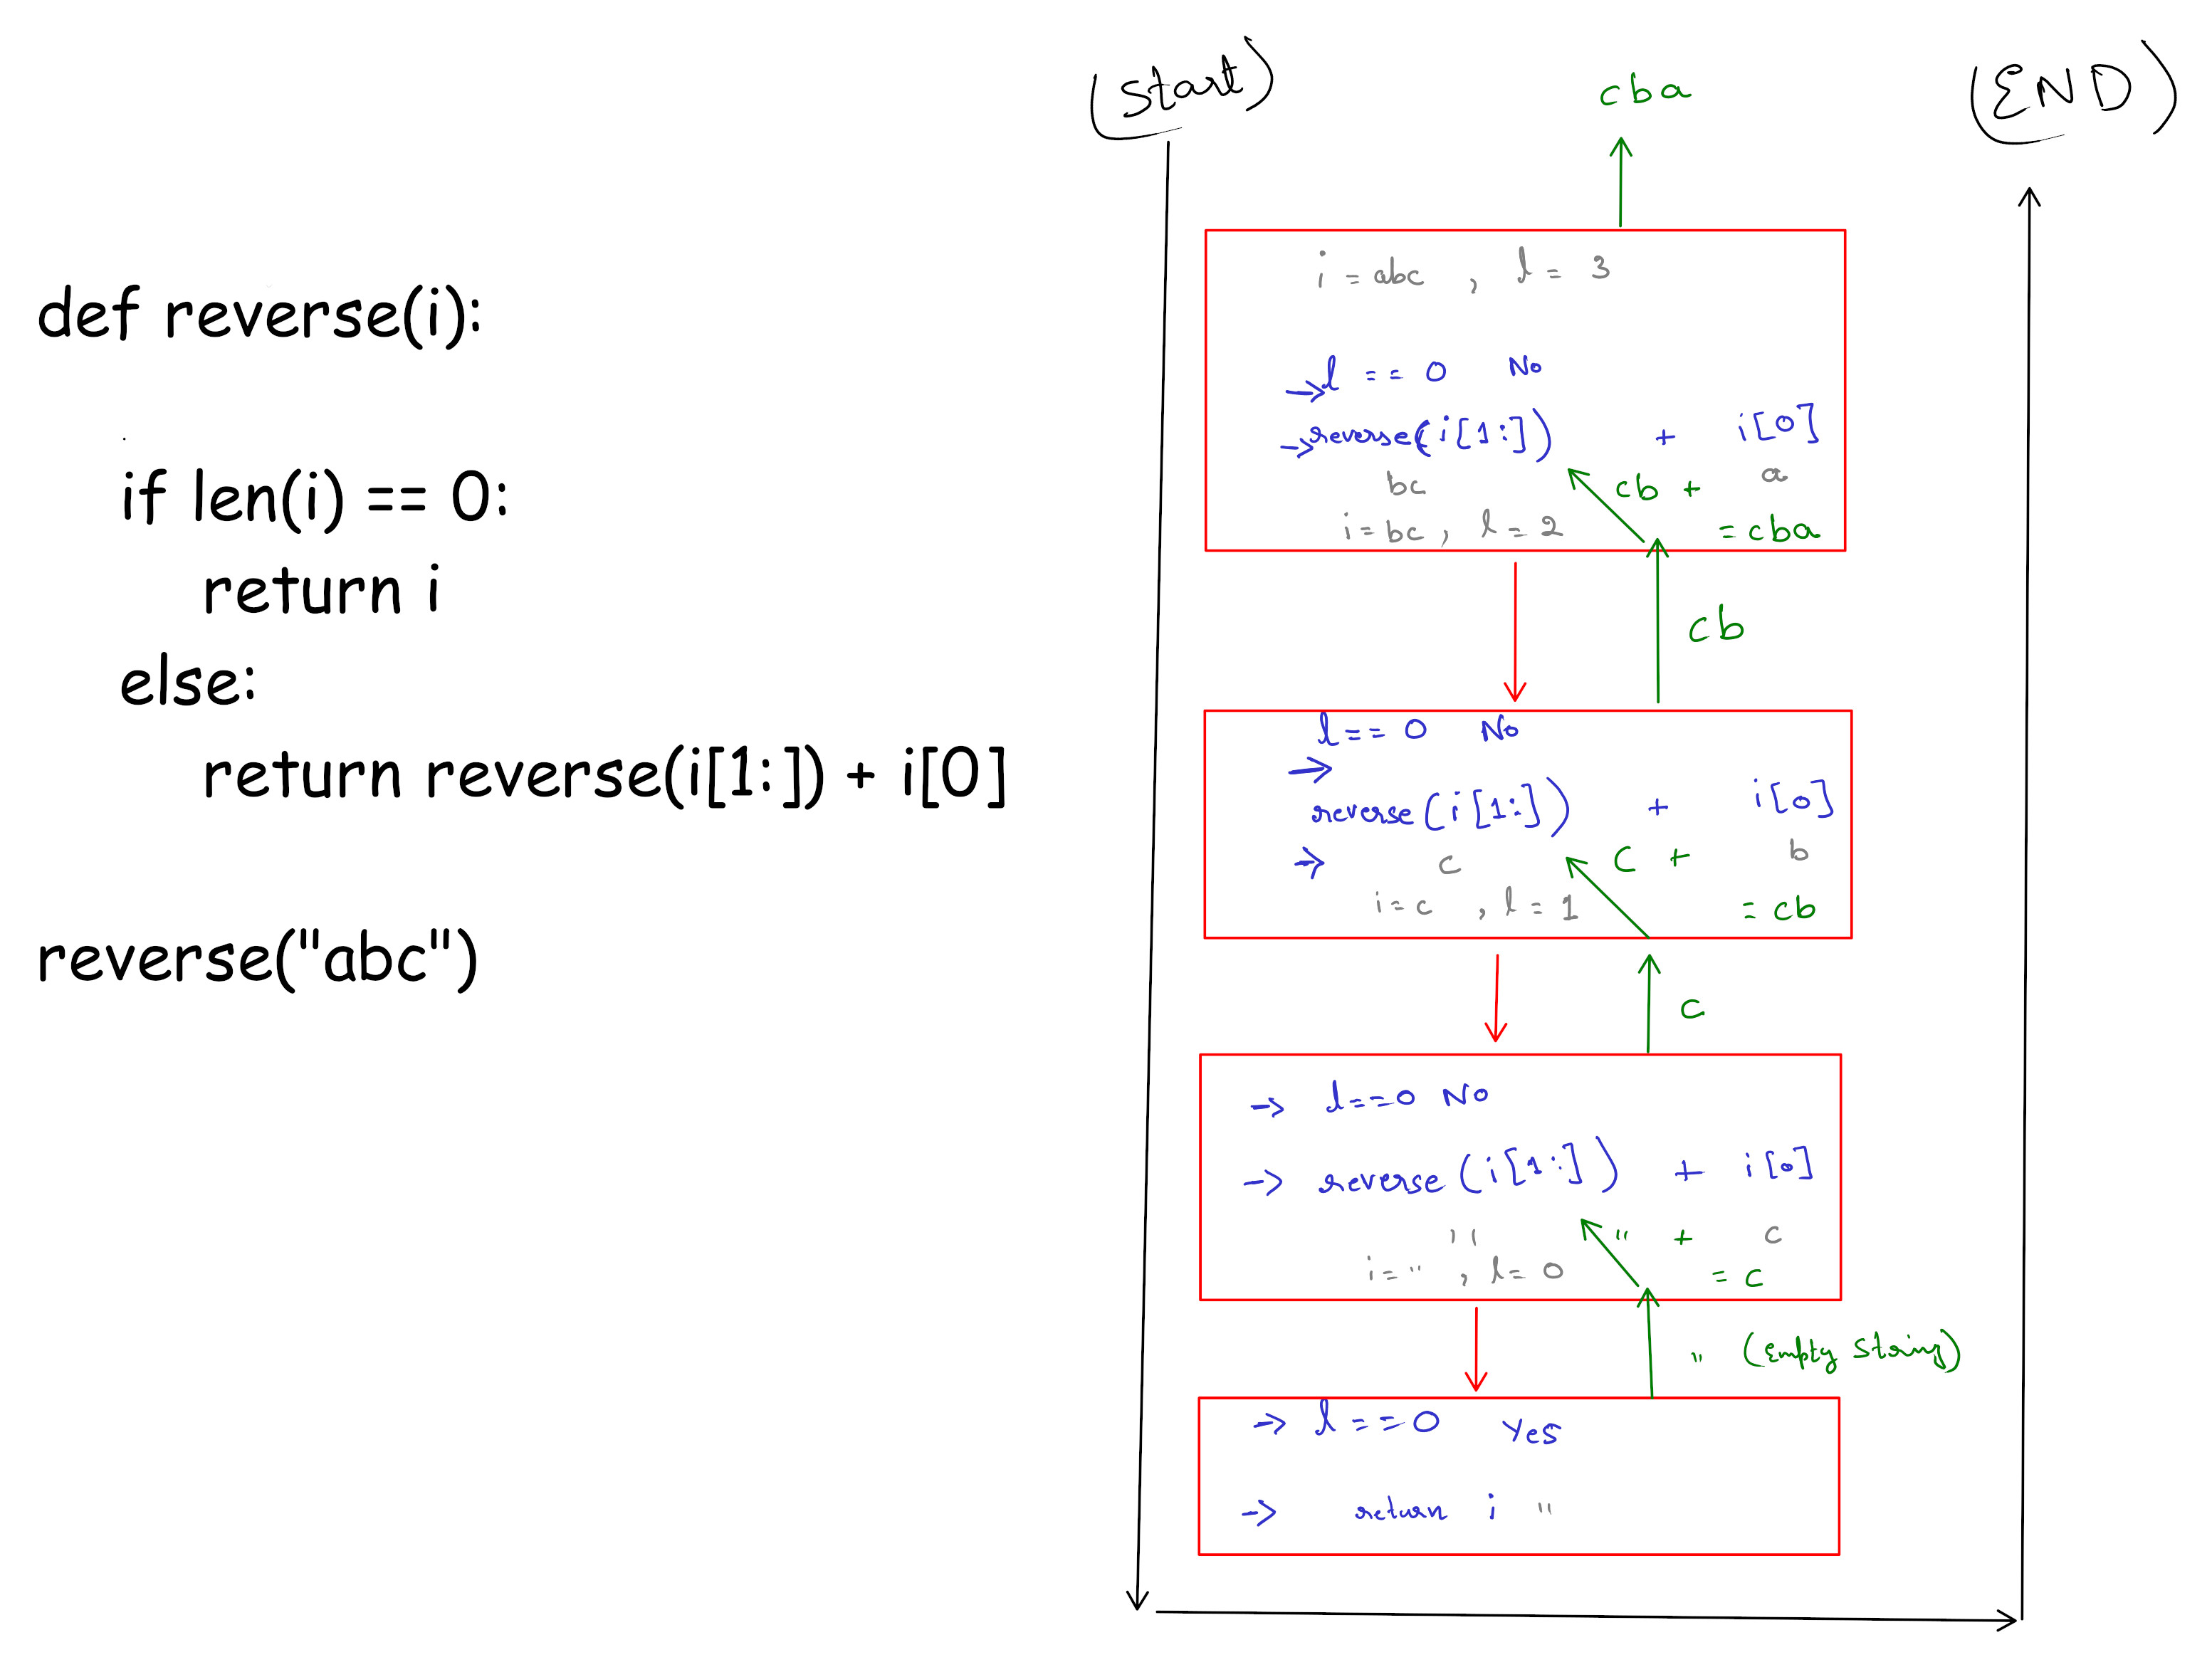 def reverse(i):
if len(i) == 0:
return i
else:
return reverse(i[1:]) + i[0]
reverse("abc")
(Start)
cba
(END)
i = abc , l = 3
→ l == 0 No
→ reverse(i[1:]) + i[0]
bc cb + a
i = bc , l = 2 = cba
cb
l == 0 No
→
reverse(i[1:]) + i[0]
→ c c + b
i = c , l = 1 = cb
c
→ l==0 No
→ reverse(i[1:]) + i[0]
" " + c
i = " , l = 0 = c
" (Empty String)
→ l ==0 Yes
→ return i "